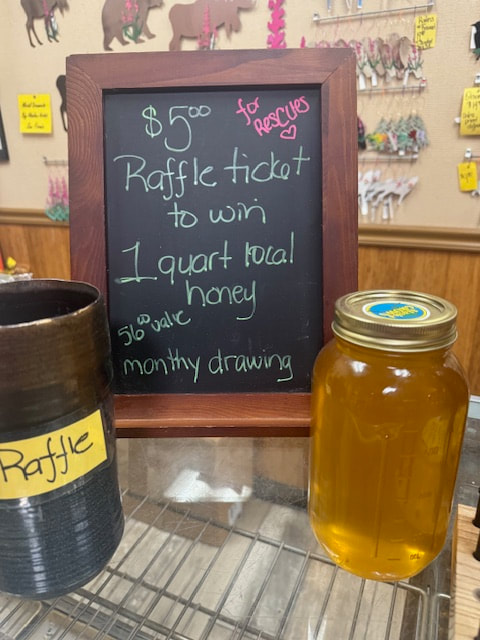 $5.00
for
Rescues
Raffle ticket
to win
1 quart local
honey
56.00 value
monthy drawing
Raffle